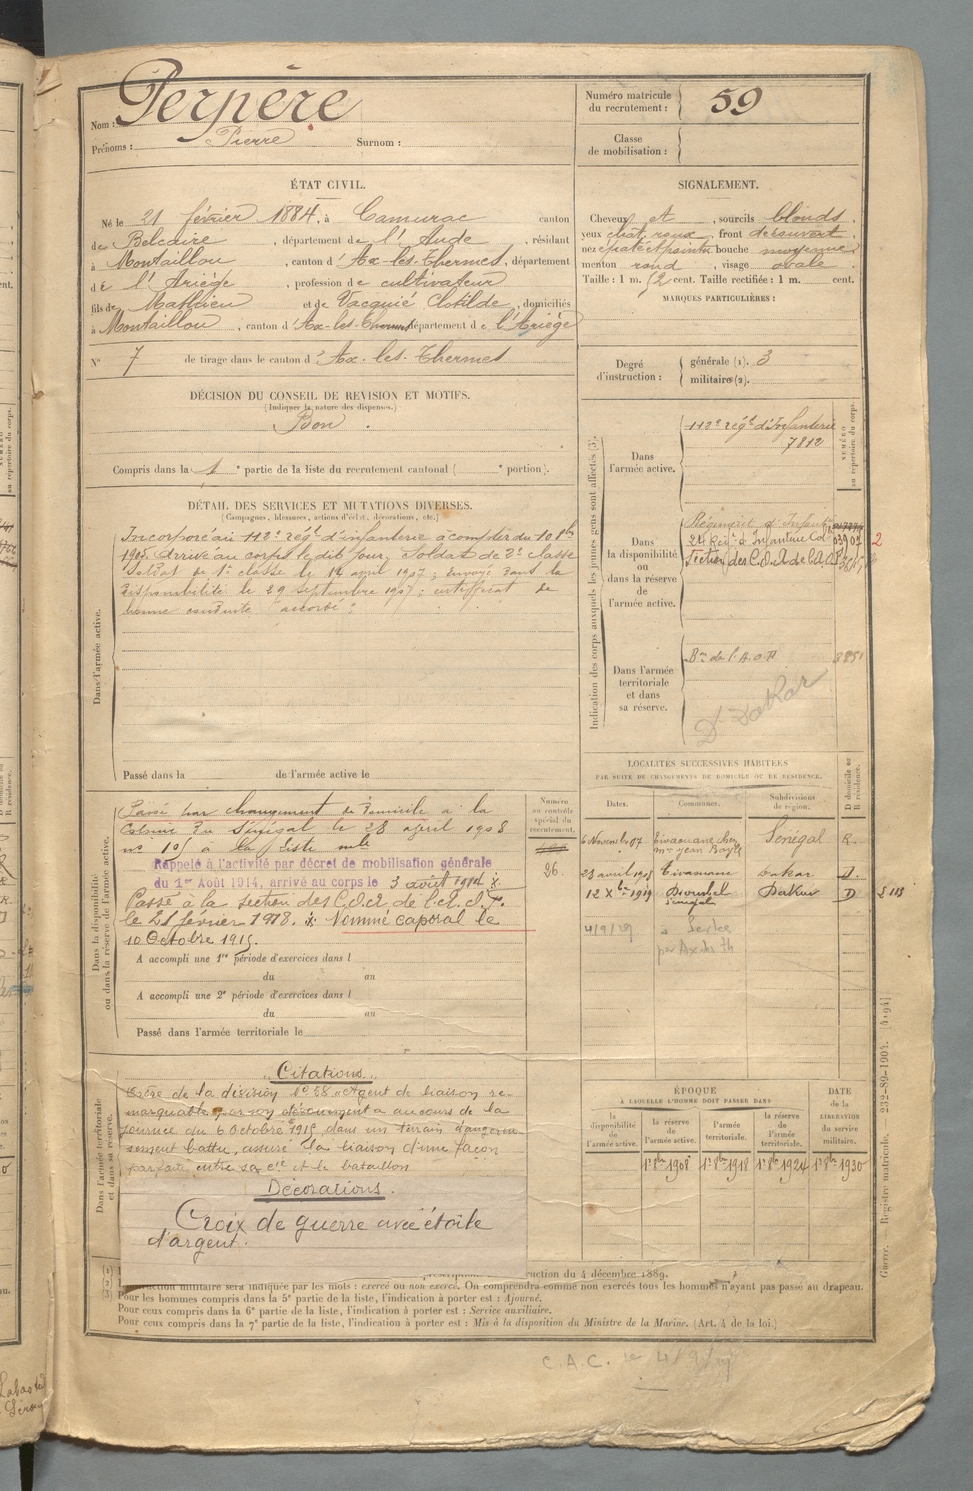 Nom : Perpère
Prénoms : Pierre Surnom :
Numéro matricule du recrutement : 59
Classe de mobilisation :
ÉTAT CIVIL.
Né le 21 février 1884, à Camurac canton
de Belcaire, département de l'Aude, résidant
à Montaillou, canton d'Ax-les-Thermes, département
de l'Ariège, profession de cultivateur
fils de Mathieu et de Vacquié Clotilde, domiciliés
à Montaillou, canton d'Ax-les-Thermes département de l'Ariège
N° 7 de tirage dans le canton d'Ax-les-Thermes
SIGNALEMENT.
Cheveux et, sourcils blonds,
yeux chat. roux, front découvert,
nez bouche moyenne
menton rond, visage ovale.
Taille : 1 m. cent. Taille rectifiée : 1 m. cent.
MARQUES PARTICULIÈRES :
Degré d'instruction : générale (1). 3
militaire (2).
DÉCISION DU CONSEIL DE REVISION ET MOTIFS.
(Indiquer la nature des dispenses.)
Bon.
Compris dans la 1e partie de la liste du recrutement cantonal ( e portion).
DÉTAIL DES SERVICES ET MUTATIONS DIVERSES.
(Campagnes, blessures, actions d'éclat, décorations, etc.)
Dans l'armée active.
Incorporé au 112e régt d'infanterie à compter du 10 8bre
1905. Arrivé au corps le dit jour, Soldat de 2e classe
Soldat de 1e classe le 14 avril 1907; Envoyé dans la
disponibilité le 29 septembre 1907; certificat de
bonne conduite "accordé".
Passé dans la de l'armée active le
Indication des corps auxquels les jeunes gens sont affectés (3).
NUMÉRO au répertoire du corps.
Dans l'armée active.
112e régt d'Infanterie
7812
Dans la disponibilité ou dans la réserve de l'armée active.
Régiment d'Infant
Section des C.O.A de l'A.O.F.
Dans l'armée territoriale et dans sa réserve.
Bon de l'A O F
Dt Dakar
Dans la disponibilité ou dans la réserve de l'armée active.
Passé par changement de domicile à la
Colonie du Sénégal le 28 avril 1908
n° 105 à la liste mle
Rappelé à l'activité par décret de mobilisation générale
du 1er Août 1914, arrivé au corps le 3 août 1914
Passé à la section des C.O.A de l'A.O.F.
le 21 février 1918. Nommé caporal le
10 Octobre 1915.
A accompli une 1re période d'exercices dans l
du au
A accompli une 2e période d'exercices dans l
du au
Passé dans l'armée territoriale le
Numéro au contrôle spécial du recrutement.
26.
LOCALITÉS SUCCESSIVES HABITÉES
PAR SUITE DE CHANGEMENTS DE DOMICILE OU DE RÉSIDENCE.
Dates. Communes. Subdivisions de région. D domicile ou R résidence.
6 Novembre 07 Tivaouane chez Mr Jean Bayle Sénégal R.
28 avril 1908 Tivaouane Dakar D.
12 Xbre 1919 Diourbel Sénégal Dakar D
4/9/29
Dans l'armée territoriale et dans sa réserve.
"Citations"
Ordre de la division No 58 "Agent de liaison re-
marquable par son dévouement a au cours de la
journée du 6 Octobre 1915, dans un terrain dangereu-
sement battu, assuré la liaison d'une façon
parfaite entre sa cie et le bataillon
Décorations.
Croix de guerre avec étoile
d'argent.
ÉPOQUE
À LAQUELLE L'HOMME DOIT PASSER DANS
DATE de la LIBÉRATION du service militaire.
la disponibilité de l'armée active. la réserve de l'armée active. l'armée territoriale. la réserve de l'armée territoriale.
1er 8bre 1908 1er 8bre 1918 1er 8bre 1924 1er 8bre 1930
ruction du 4 décembre 1889.
ruction militaire sera indiquée par les mots : exercé ou non exercé. On comprendra comme non exercés tous les hommes n'ayant pas passé au drapeau.
Pour les hommes compris dans la 5e partie de la liste, l'indication à porter est : Ajourné.
Pour ceux compris dans la 6e partie de la liste, l'indication à porter est : Service auxiliaire.
Pour ceux compris dans la 7e partie de la liste, l'indication à porter est : Mis à la disposition du Ministre de la Marine. (Art. 4 de la loi.)
Guerre. — Registre matricule. — 232-89-1904. [4194]
C.A.C. le 4/9/29